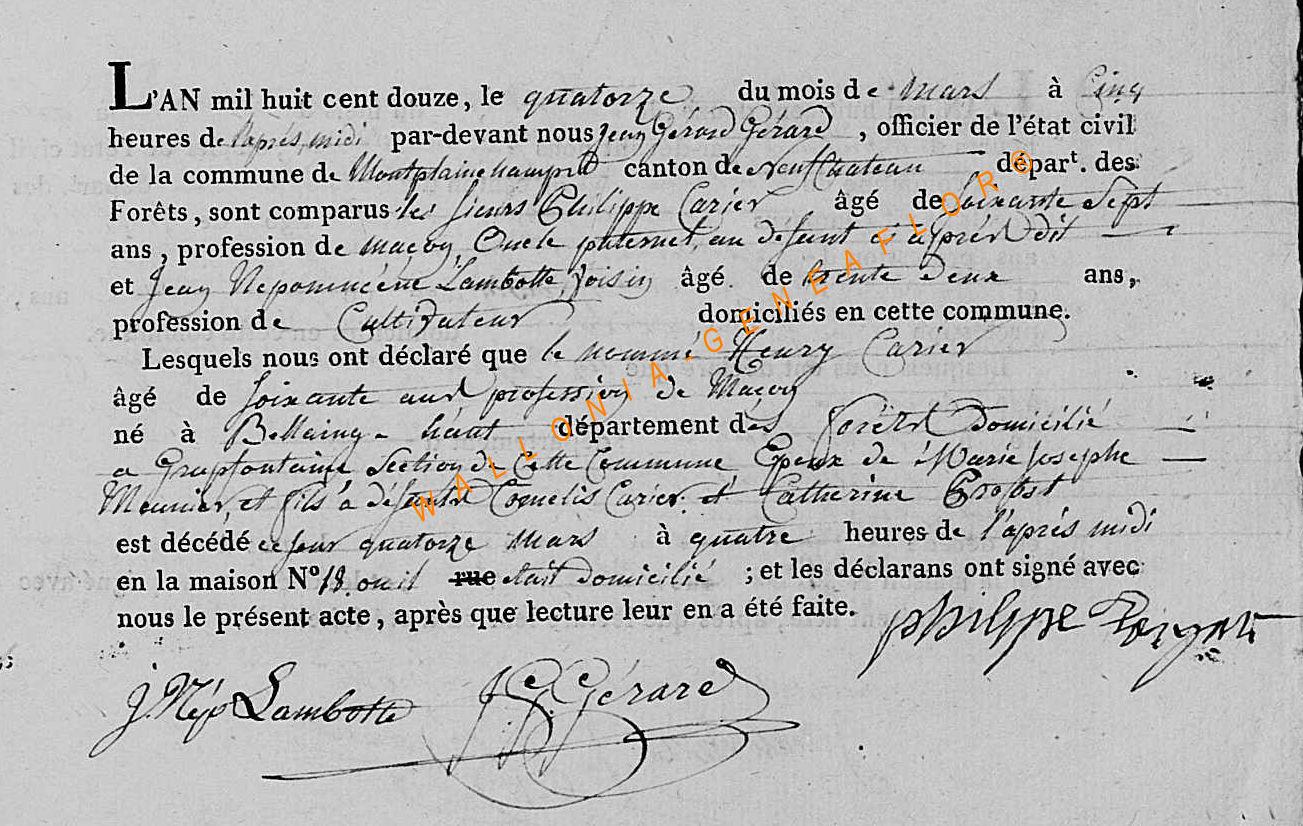 L'AN mil huit cent douze, le quatorze du mois de mars à Cinq
heures de l'après midi par-devant nous Jean Gérard Gérard, officier de l'état civil
de la commune de Montplainchamps canton de Neufchateau départ. des
Forêts, sont comparus les sieurs Philippe Carier âgé de soixante Sept
ans, profession de maçon, Oncle paternel, au défunt ci après dit
et Jean Nepomucène Lambotte, voisin âgé de trente deux ans,
profession de Cultivateur domiciliés en cette commune.
Lesquels nous ont déclaré que le nommé Henry Carier
âgé de soixante ans profession de Maçon
né à haut département des forêts Domicilié
a Grapfontaine Section de Cette Commune Epoux de Marie Josephe
Meunier, et fils à défunts Cornelis Carier et Catherine Probst
est décédé ce jour quatorze mars à quatre heures de l'après midi
en la maison N° 18 ou il rue etait domicilié ; et les déclarans ont signé avec
nous le présent acte, après que lecture leur en a été faite.
philippe
J. Nép Lambotte J.G. Gérard
WALLONIA-GENEAFLOR©